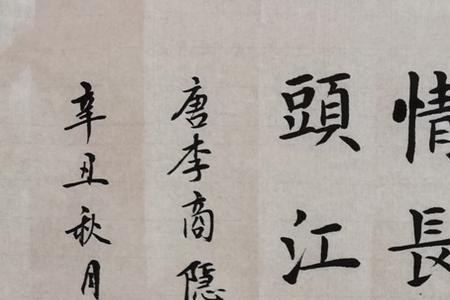 情長
頭江
唐李商隱
辛丑秋月